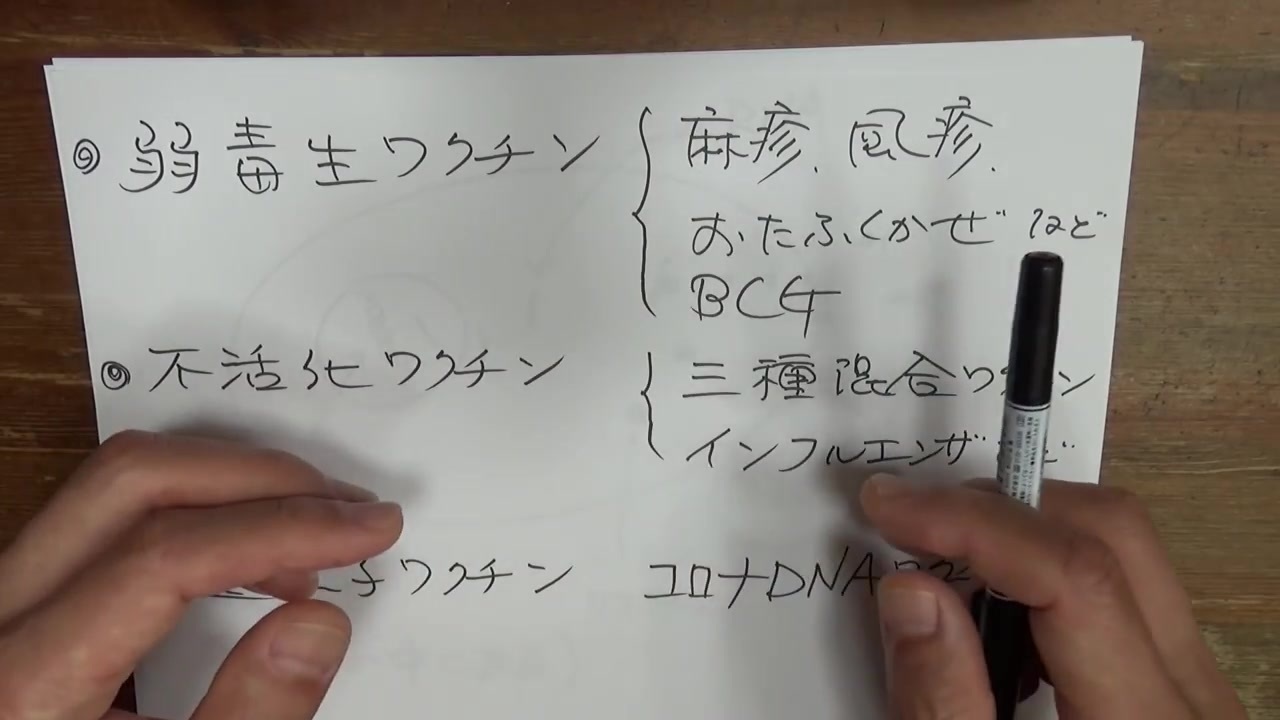 ◎ 弱毒生ワクチン 麻疹、風疹、
おたふくかぜ など
BCG
◎ 不活化ワクチン 三種混合ワクチン
インフルエンザ
子ワクチン コロナDNAワク